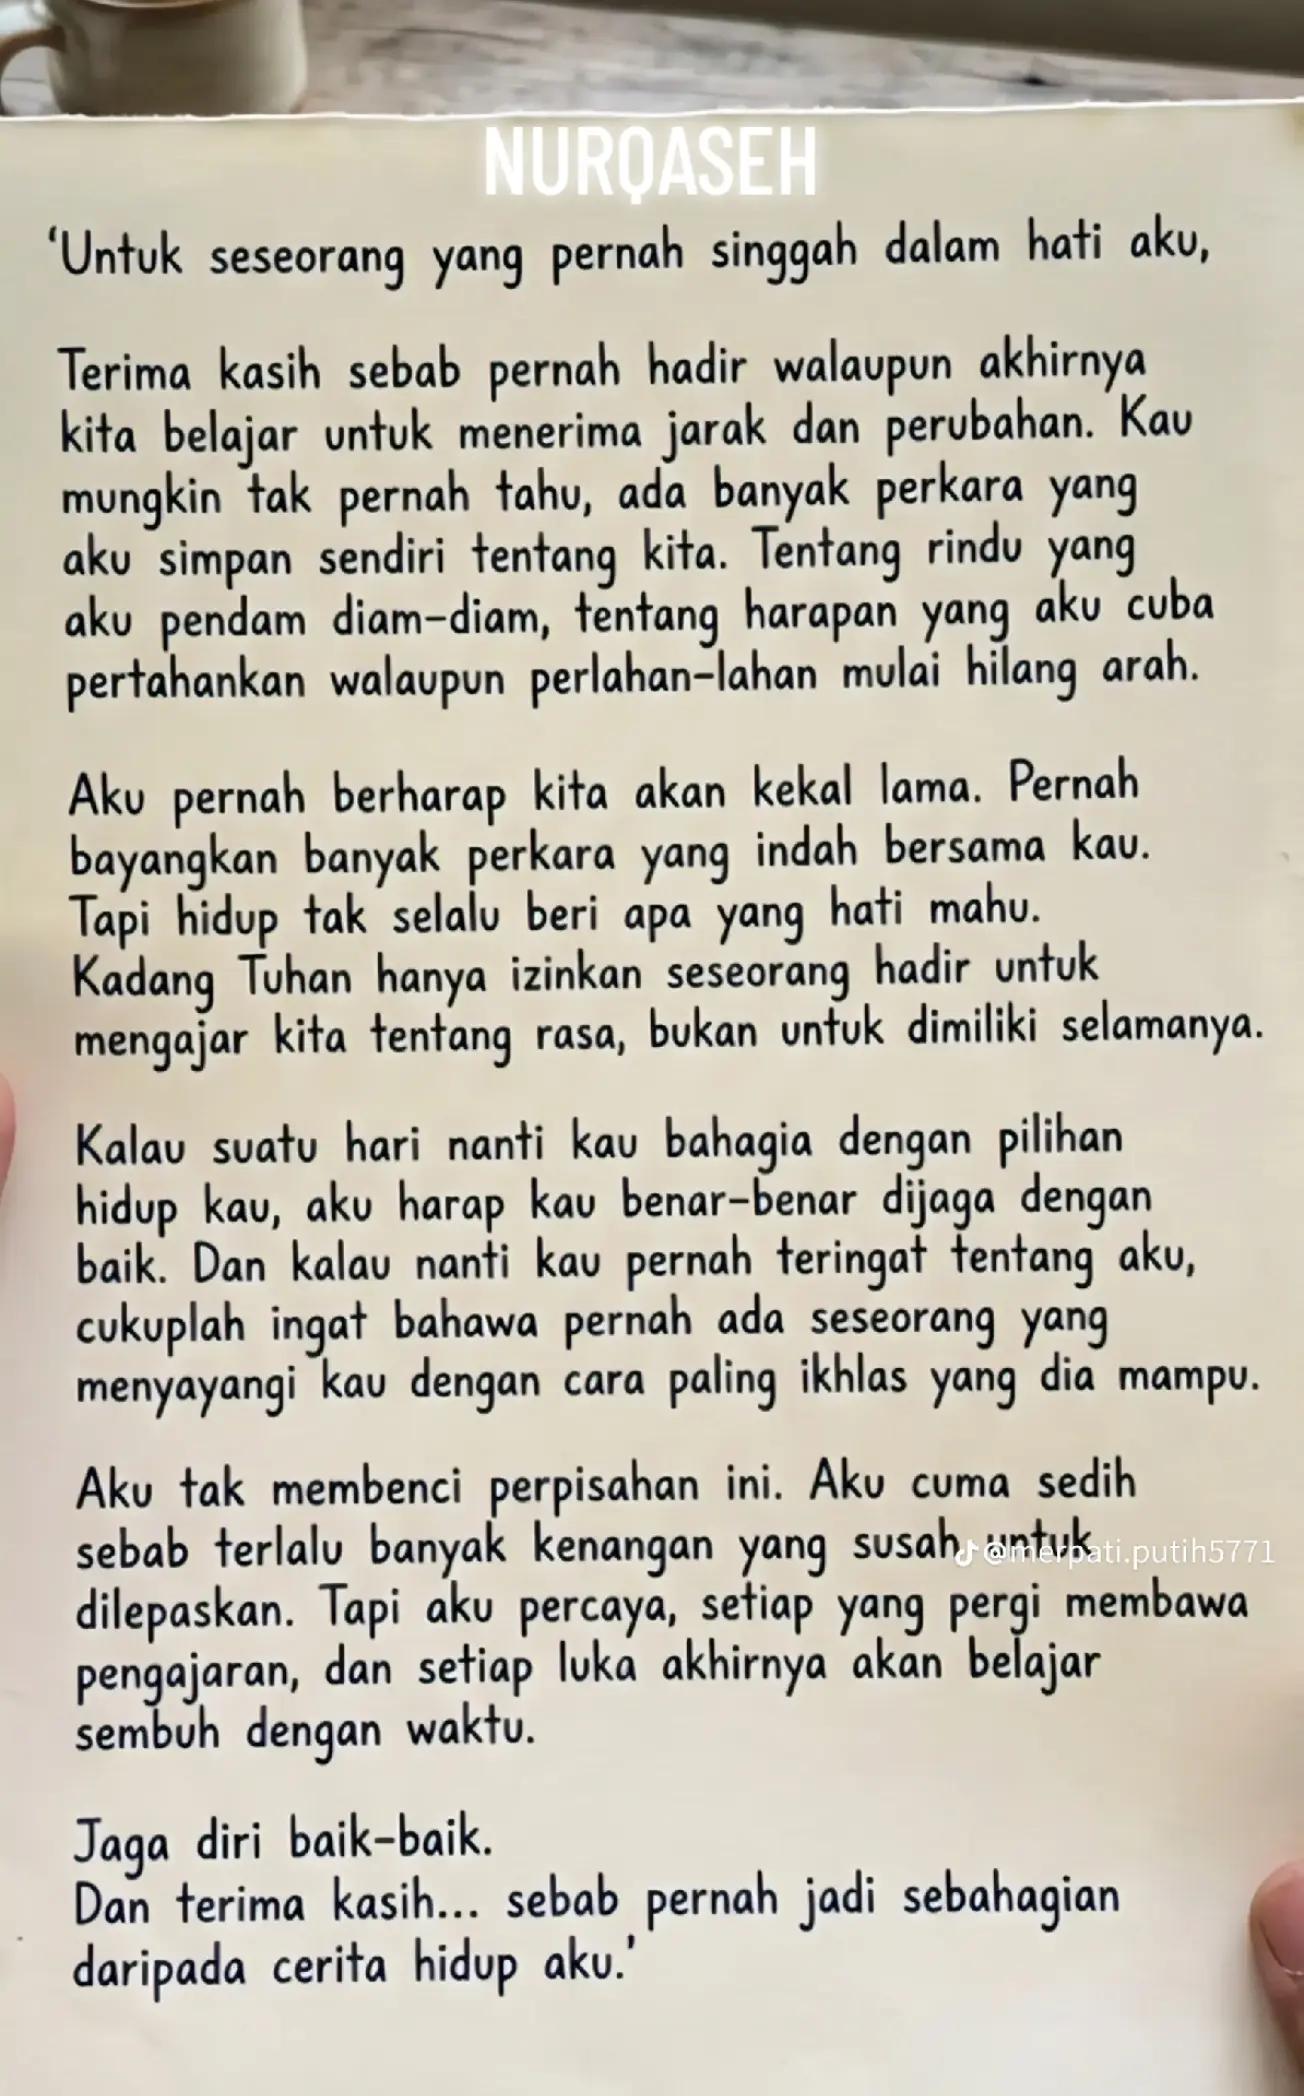 NURQASEH
‘Untuk seseorang yang pernah singgah dalam hati aku,
Terima kasih sebab pernah hadir walaupun akhirnya
kita belajar untuk menerima jarak dan perubahan. Kau
mungkin tak pernah tahu, ada banyak perkara yang
aku simpan sendiri tentang kita. Tentang rindu yang
aku pendam diam-diam, tentang harapan yang aku cuba
pertahankan walaupun perlahan-lahan mulai hilang arah.
Aku pernah berharap kita akan kekal lama. Pernah
bayangkan banyak perkara yang indah bersama kau.
Tapi hidup tak selalu beri apa yang hati mahu.
Kadang Tuhan hanya izinkan seseorang hadir untuk
mengajar kita tentang rasa, bukan untuk dimiliki selamanya.
Kalau suatu hari nanti kau bahagia dengan pilihan
hidup kau, aku harap kau benar-benar dijaga dengan
baik. Dan kalau nanti kau pernah teringat tentang aku,
cukuplah ingat bahawa pernah ada seseorang yang
menyayangi kau dengan cara paling ikhlas yang dia mampu.
Aku tak membenci perpisahan ini. Aku cuma sedih
sebab terlalu banyak kenangan yang susah untuk
@merpati.putih5771
dilepaskan. Tapi aku percaya, setiap yang pergi membawa
pengajaran, dan setiap luka akhirnya akan belajar
sembuh dengan waktu.
Jaga diri baik-baik.
Dan terima kasih... sebab pernah jadi sebahagian
daripada cerita hidup aku.’